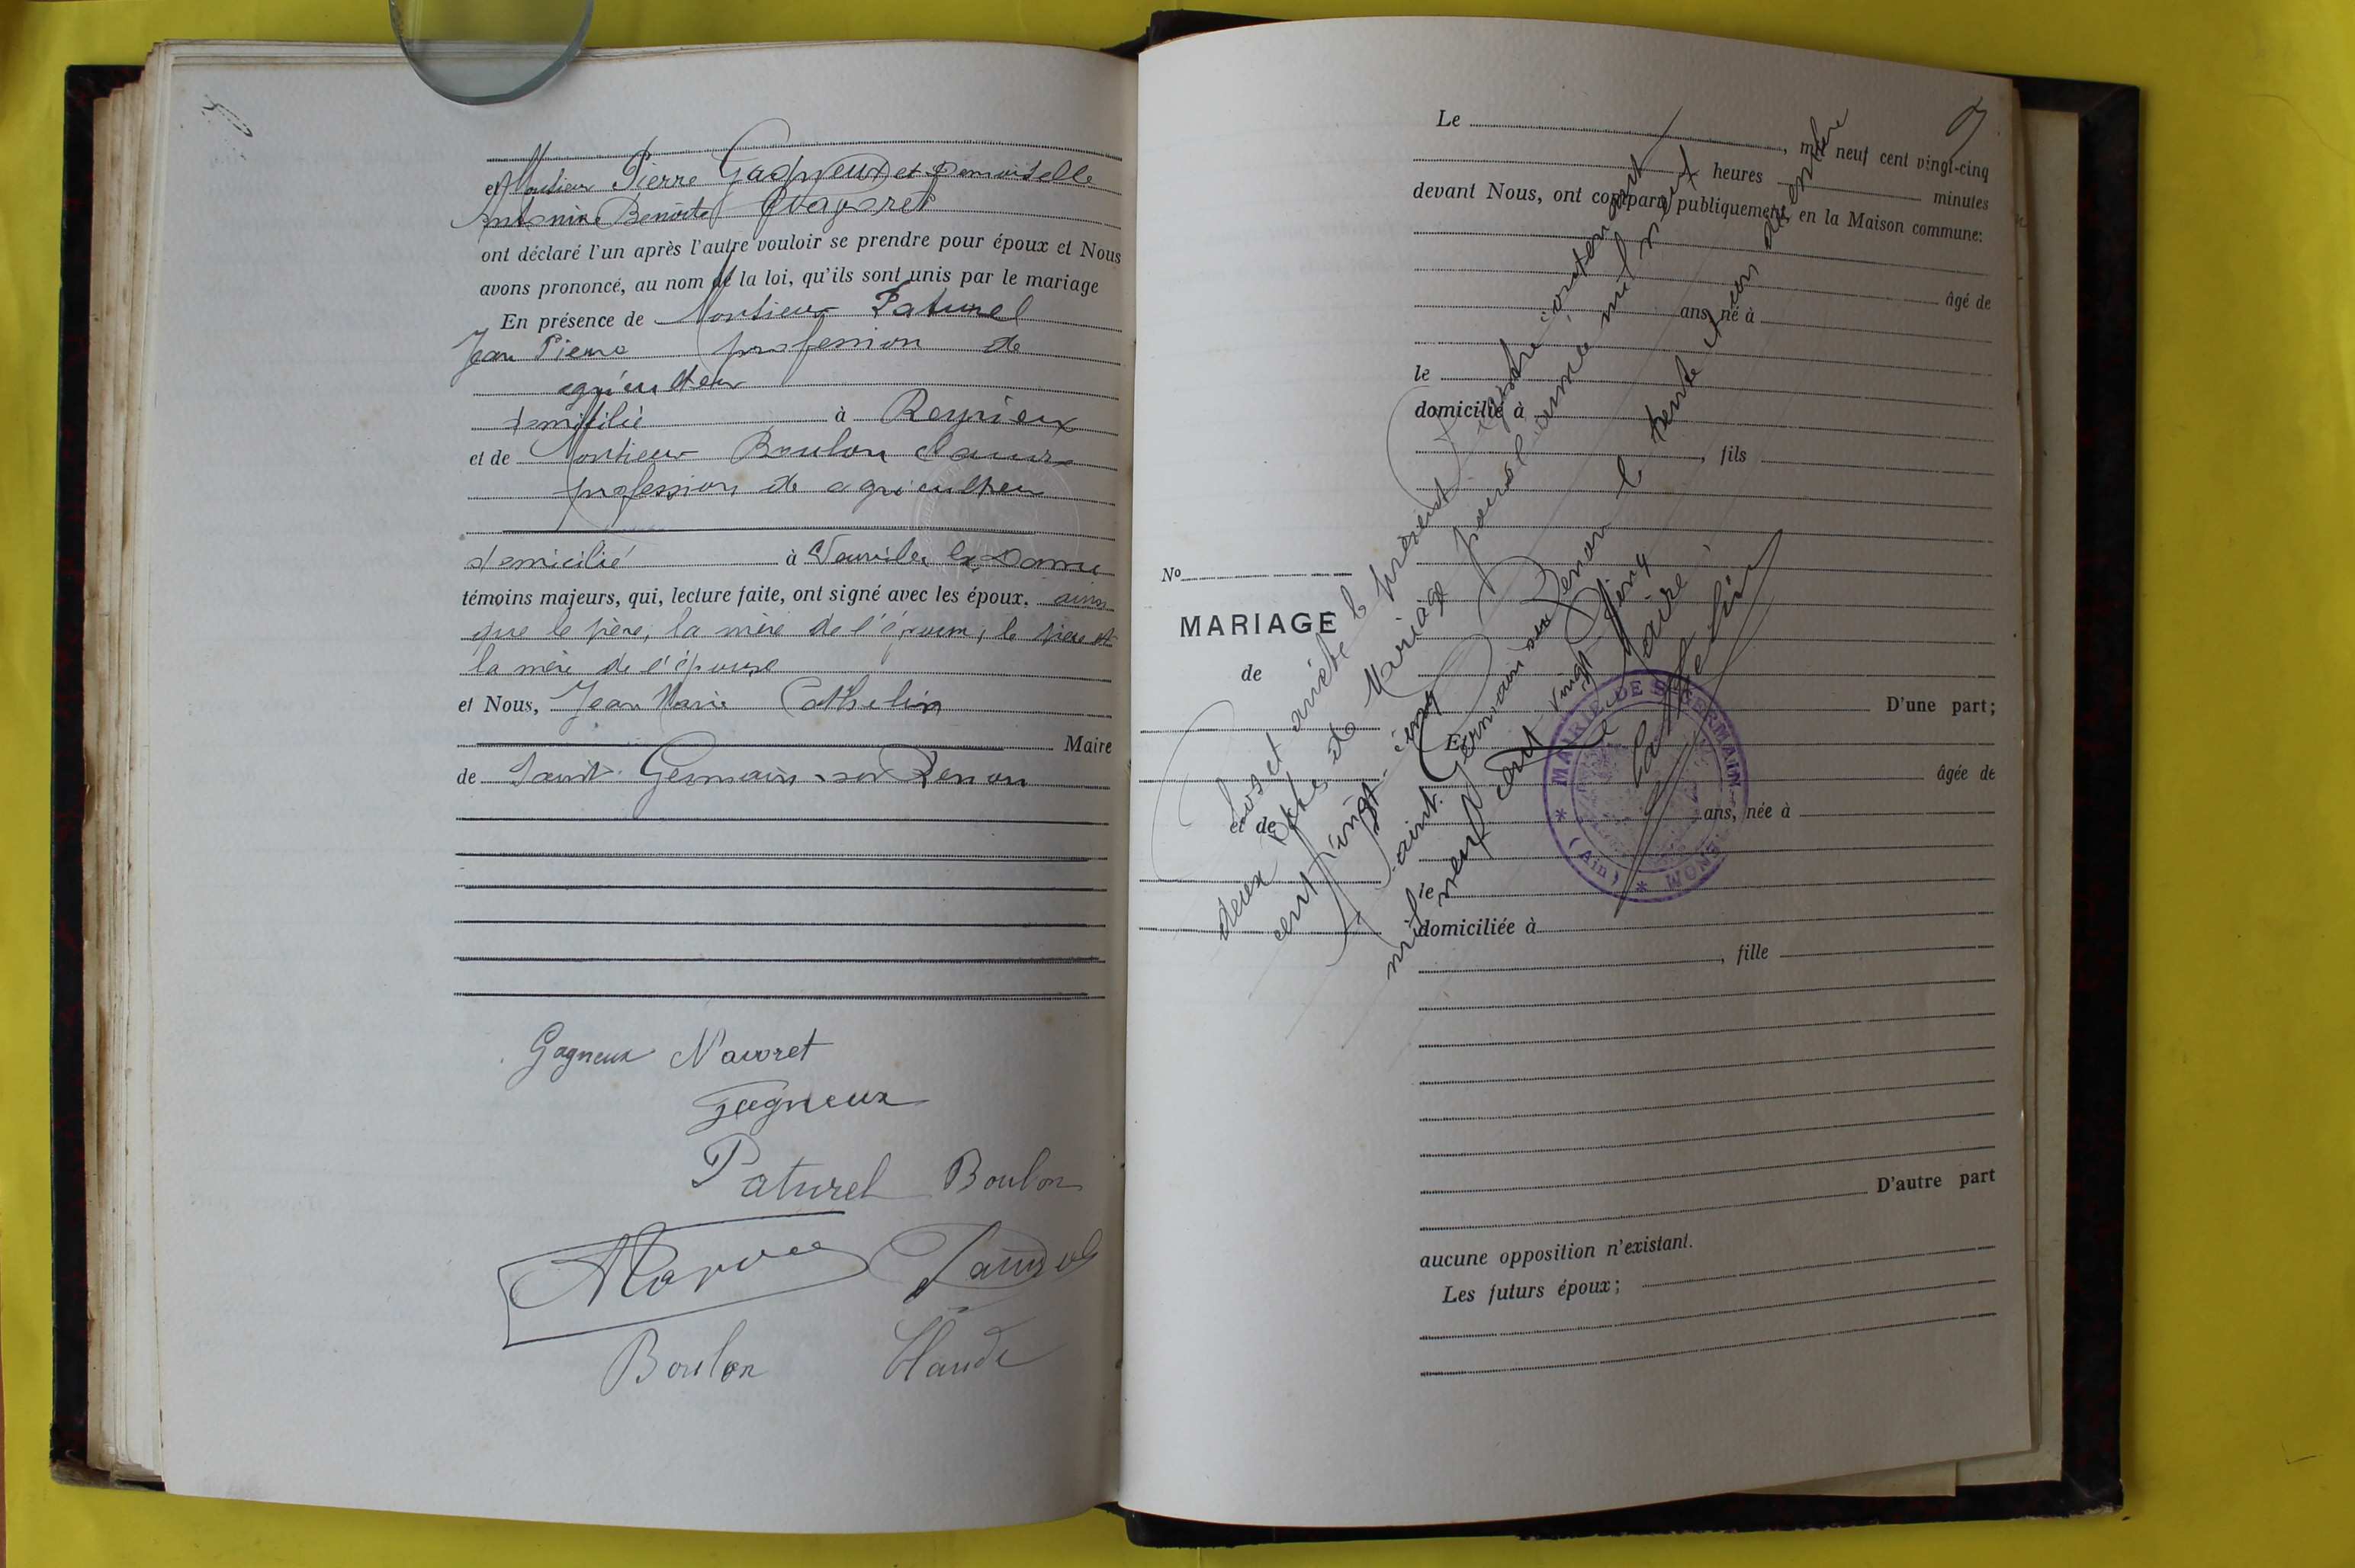 et Monsieur Pierre Gagneux et Demoiselle
Antonine Benoite Navoret
ont déclaré l'un après l'autre vouloir se prendre pour époux et Nous
avons prononcé, au nom de la loi, qu'ils sont unis par le mariage
En présence de Monsieur Paturel
Jean Pierre profession de
agriculteur
domicilié à Reyrieux
et de Monsieur Boulon
profession de agriculteur
domicilié à
témoins majeurs, qui, lecture faite, ont signé avec les époux, ainsi
que le père, la mère de l'époux, le père et
la mère de l'épouse
et Nous, Jean Marie Cathelin
Maire
de Saint Germain sur Renon
Gagneux Navoret
Gagneux
Paturel Boulon
Boulon Claude
Le , mil neuf cent vingt-cinq
heures minutes
devant Nous, ont comparu publiquement en la Maison commune:
âgé de
ans, né à
le
domicilié à
, fils
No
MARIAGE
de
D'une part;
Et
âgée de
et de
ans, née à
le
domiciliée à
, fille
D'autre part
aucune opposition n'existant.
Les futurs époux;
Clos et arrêté le présent registre contenant
deux actes de Mariage pour l'année mil neuf
cent vingt-cinq
Saint Germain sur Renon le trente et un décembre
mil neuf cent vingt cinq
Le Maire
Cathelin
* MAIRIE DE ST GERMAIN * (Ain)